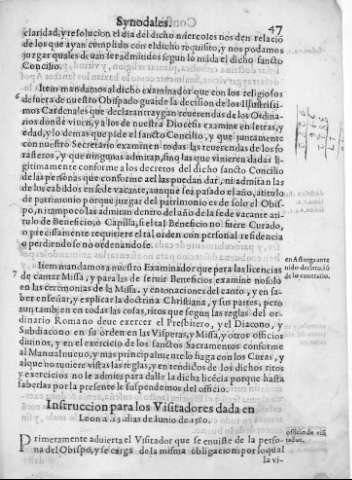 Synodales.
47
claridad, y resolucion el dia del dicho miercoles nos den relació
de los que ayan cumplido con el dicho requisito, y nos podamos
juzgar quales deuan ser admitidos segun lo māda el dicho sancto
Concilio.
6 Item mandamos al dicho examinador que con los religiosos
de fuera de nuestro Obispado guarde la decision de los Illustrissi-
mos Cardenales que declaran traygan reuerendas de los Ordina-
rios donde viuen, y a los de nuestra Diocesis examine en letras, y
edad, y lo demas que pide el sancto Concilio, y que juntamente
con nuestro Secretario examinen todas las reuerendas de los fo-
rasteros, y que ningunas admitan, sino las que vinieren dadas li-
gitimamente conforme a los decretos del dicho sancto Concilio
de las personas que conforme a el las puedan dar, ni admitan las
de los cabildos en sede vacante, aunque sea passado el año, a titulo
de patrimonio porque juzgar del patrimonio es de solo el Obis-
po, ni tampoco las admitan dentro del año de la sede vacante a ti-
tulo de Beneficio, ò Capilla, si el tal Beneficio no fuere Curado,
o precisamente requiriere el tal orden con personal residencia
o perdiendose no ordenandose.
en Astorga ante
nido declaració
de lo contrario.
7 Item mandamos a nuestro Examinador que para las licencias
de cantar Missa, y para las de seruir Beneficios examine no solo
en las ceremonias de la Missa, y entonaciones del canto, y en sa-
ber enseñar, y explicar la doctrina Christiana, y sus partes, pero
aun tambien en todas las cosas, ritos que segun las reglas del or-
dinario Romano deue exercer el Presbitero, y el Diacono, y
Subdiacono en su orden en las Visperas, y Missa, y otros officios
diuinos, y en el exercicio de los sanctos Sacramentos conforme
al Manual nueuo, y mas principalmente lo haga con los Curas, y
al que no tuuiere vistas las reglas, y entendidos de los dichos ritos
y exercicios no le admita para dalle la dicha licécia porque hasta
saberlas por la presente le suspendemos del officio.
Instruccion para los Visitadores dada en
Leon a .15. dias de Iunio de 1580.
PRimeramente aduierta el Visitador que se enuiste de la perso-
na del Obispo, y se carga de la misma obligacion por lo qual
la vi-